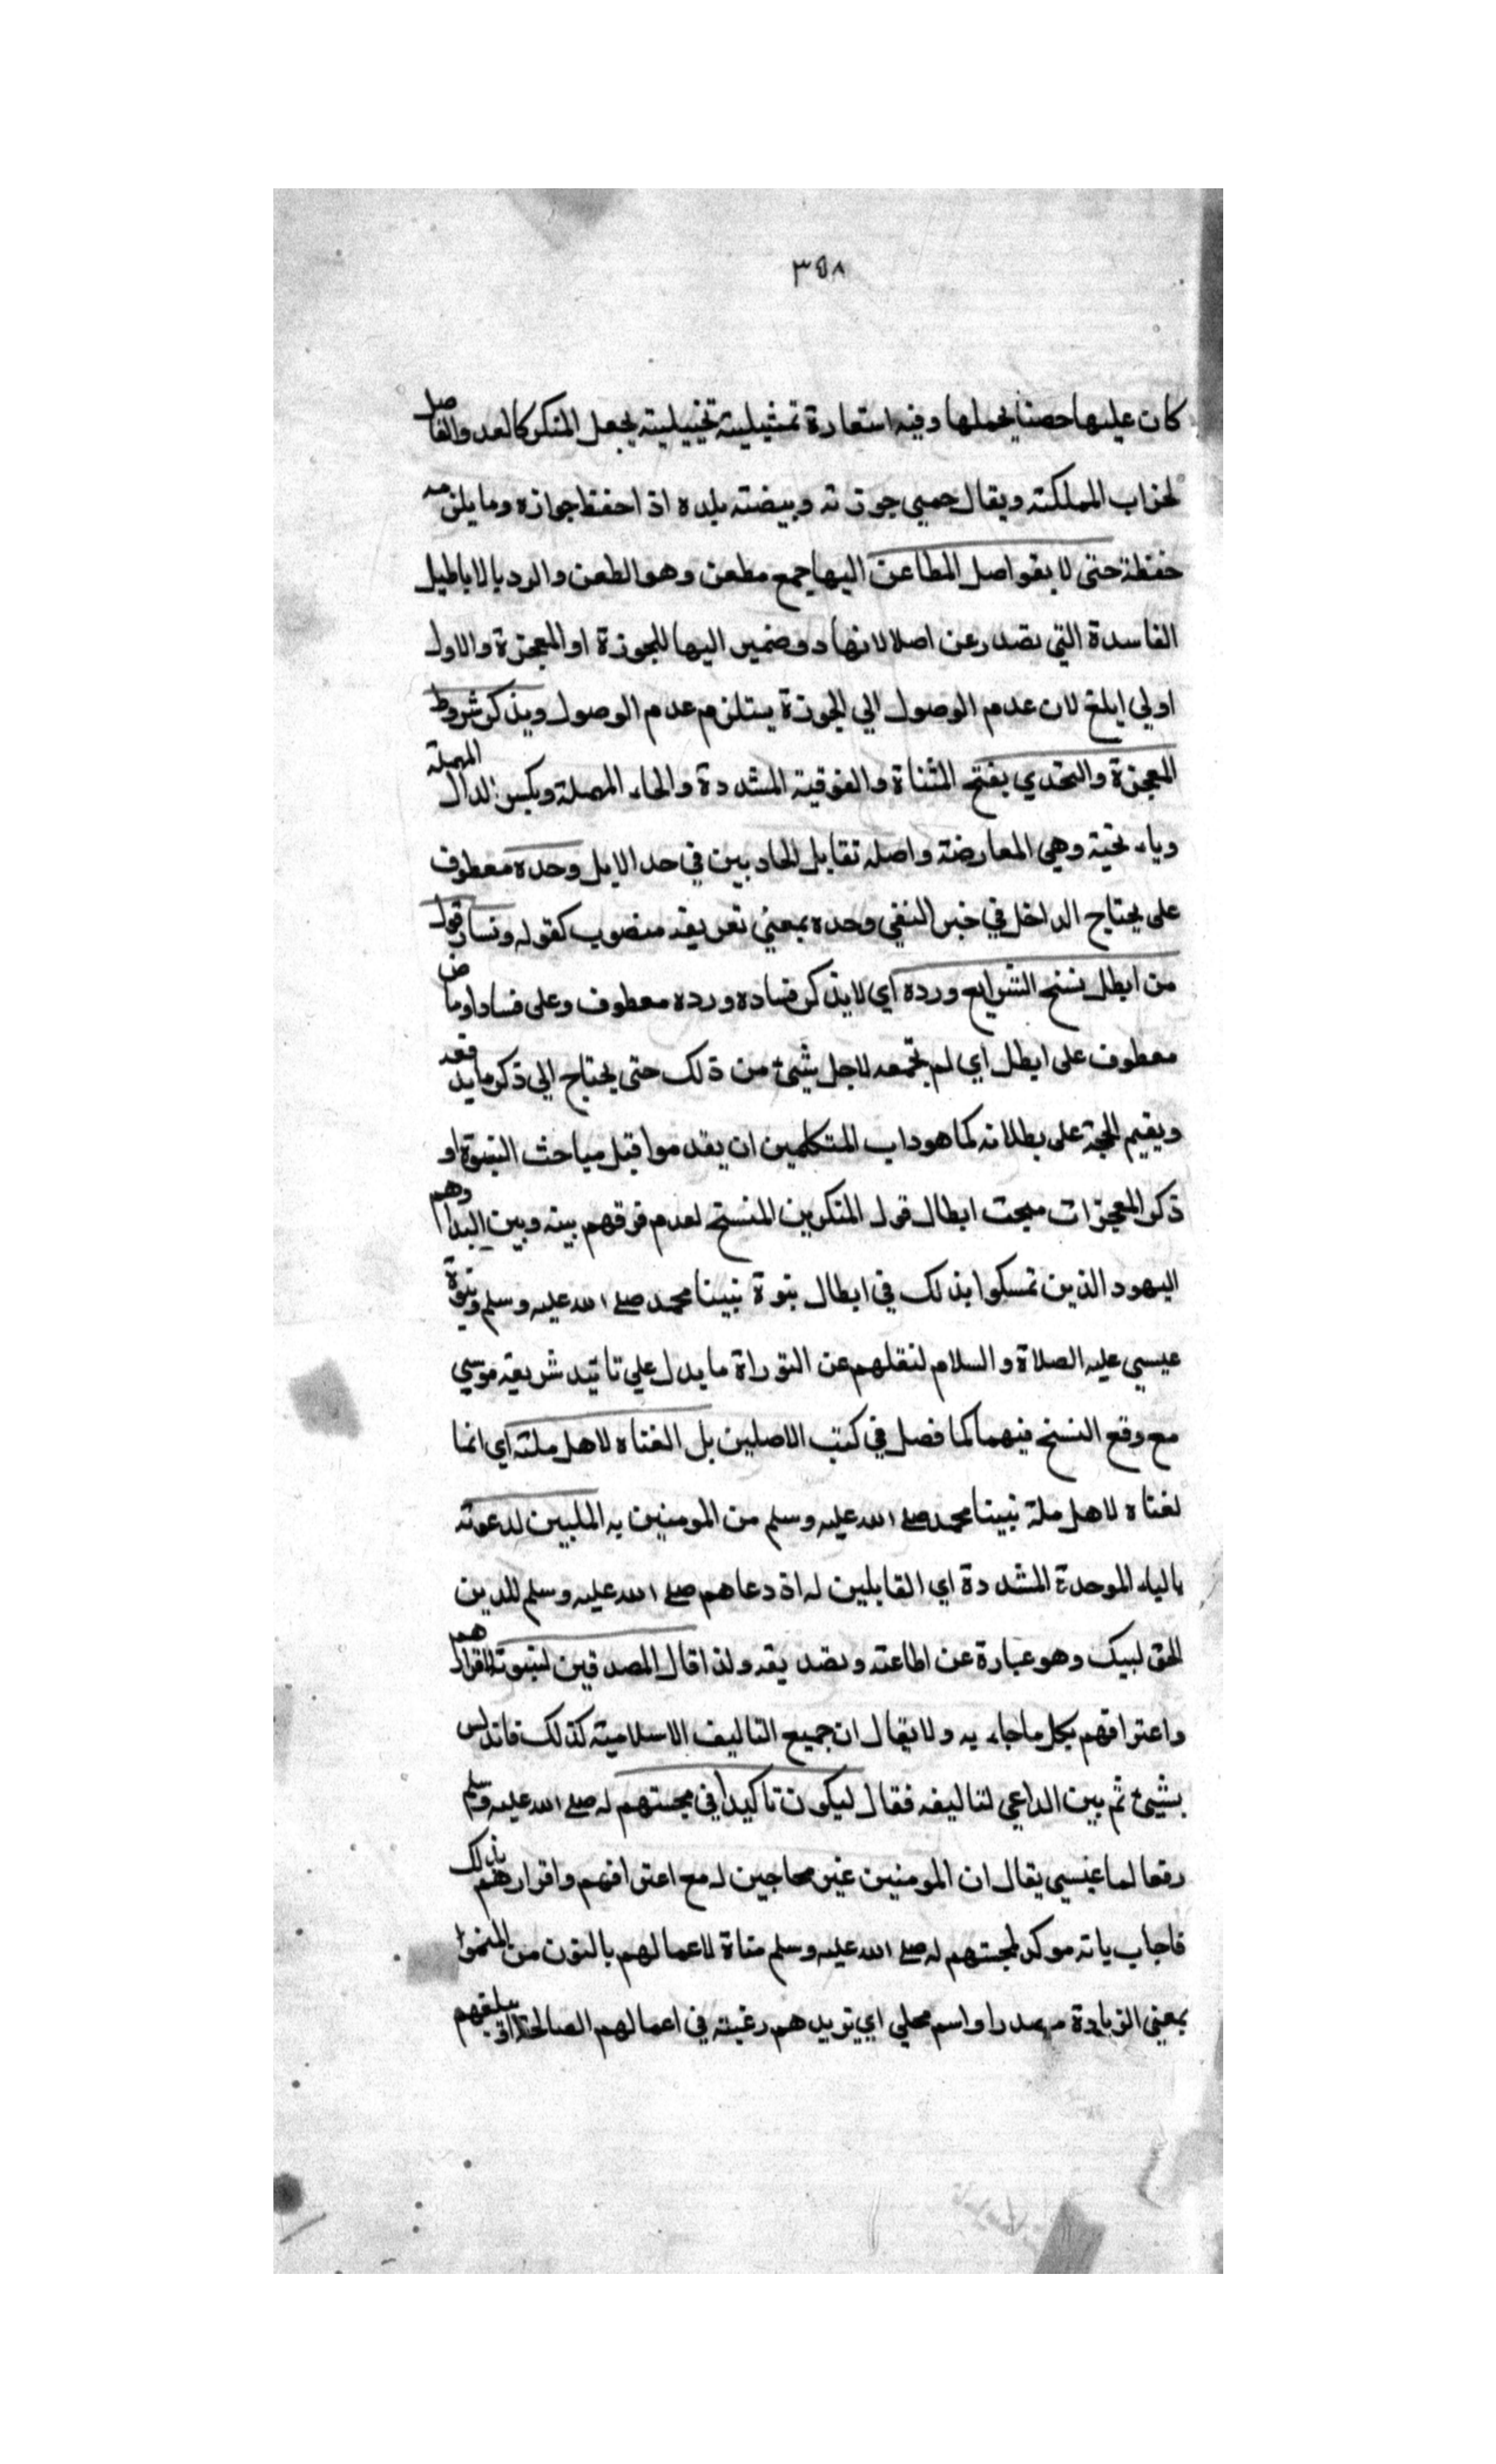 ٣٥٨
كان عليها حصنا يحملها وفيه استعارة تمثيلية تخييلية بجعل المنكر كالعدو والقاصد
لخراب المملكة ويقال حمي حوزته وبيضته بلده اذا حفظ جوازه وما يلزمه
حفظة حتى لا يتواصل المطاعن اليها جمع مطعن وهو الطعن والرد بالاباطيل
الفاسدة التي تصدر عن اصلالانهاد وضمير اليها للحوزة او المعجزة والاول
اولي ابلغ لان عدم الوصول الي الحوزة يستلزم عدم الوصول ويذكر شروط
المعجزة والتحدي بفتح المثناة والفوقية المشددة والحاء المهملة وبكسر الدال المهملة
وياء تحية وهي المعارضة واصله تقابل الحاديين في حد الابل وحده معطوف
على يحتاج الداخل في خبر النفي وحده بمعني تعريفه منصوب كقوله وفساد قول
من ابطل نسخ الشرايع ورده اي لا يذكر فساده ورده معطوف وعلى فساد اوما ض
معطوف على ابطل اي لم نجمعه لاجل شيئ من ذلك حتى يحتاج الي ذكر ما يدفعه
ويقيم الحجة على بطلانه كما هو داب المتكلمين ان يقدموا قبل مباحث النبوة او
ذكر المعجزات مبحث ابطال قول المنكرين المنسخ لعدم فرقهم بينه وبين البدا وهم
اليهود الذين تمسكوا بذلك في ابطال نبوة نبينا محمد صلى الله عليه وسلم ونبوة
عيسي عليه الصلاة والسلام لنقلهم عن التوراة ما يدل علي تائيد شريعة موسي
مع وقع النسخ فيهما كما فصل في كتب الاصلين بل الفناه لاهل ملته اي انما
لفناه لاهل ملة نبينا محمد صلى الله عليه وسلم من المومنين به الملبين لدعوته
بالباء الموحدة المشددة اي القابلين له اذ دعاهم صلى الله عليه وسلم للدين
الحق لبيك وهو عبارة عن اطاعته وتصديقه ولذا قال المصدقين لنبوته لاقرارهم
واعترافهم بكل ما جاء به ولا يقال ان جميع التاليف الاسلامية كذلك فانه ليس
بشيئ ثم بين الداعي لتاليفه فقال ليكون تاكيدا في محبتهم له صلى الله عليه وسلم
رفعا لما عيسي يقال ان المومنين غير محاجين له مع اعترافهم واقرارهم بذلك
فاجاب بانه موكد لمحبتهم له صلى الله عليه وسلم مناة لاعمالهم بالنون من النمو
بمعني الزيادة مصدرا واسم محلي اي تزيدهم رغبة في اعمالهم الصالحة اذ يبلغهم